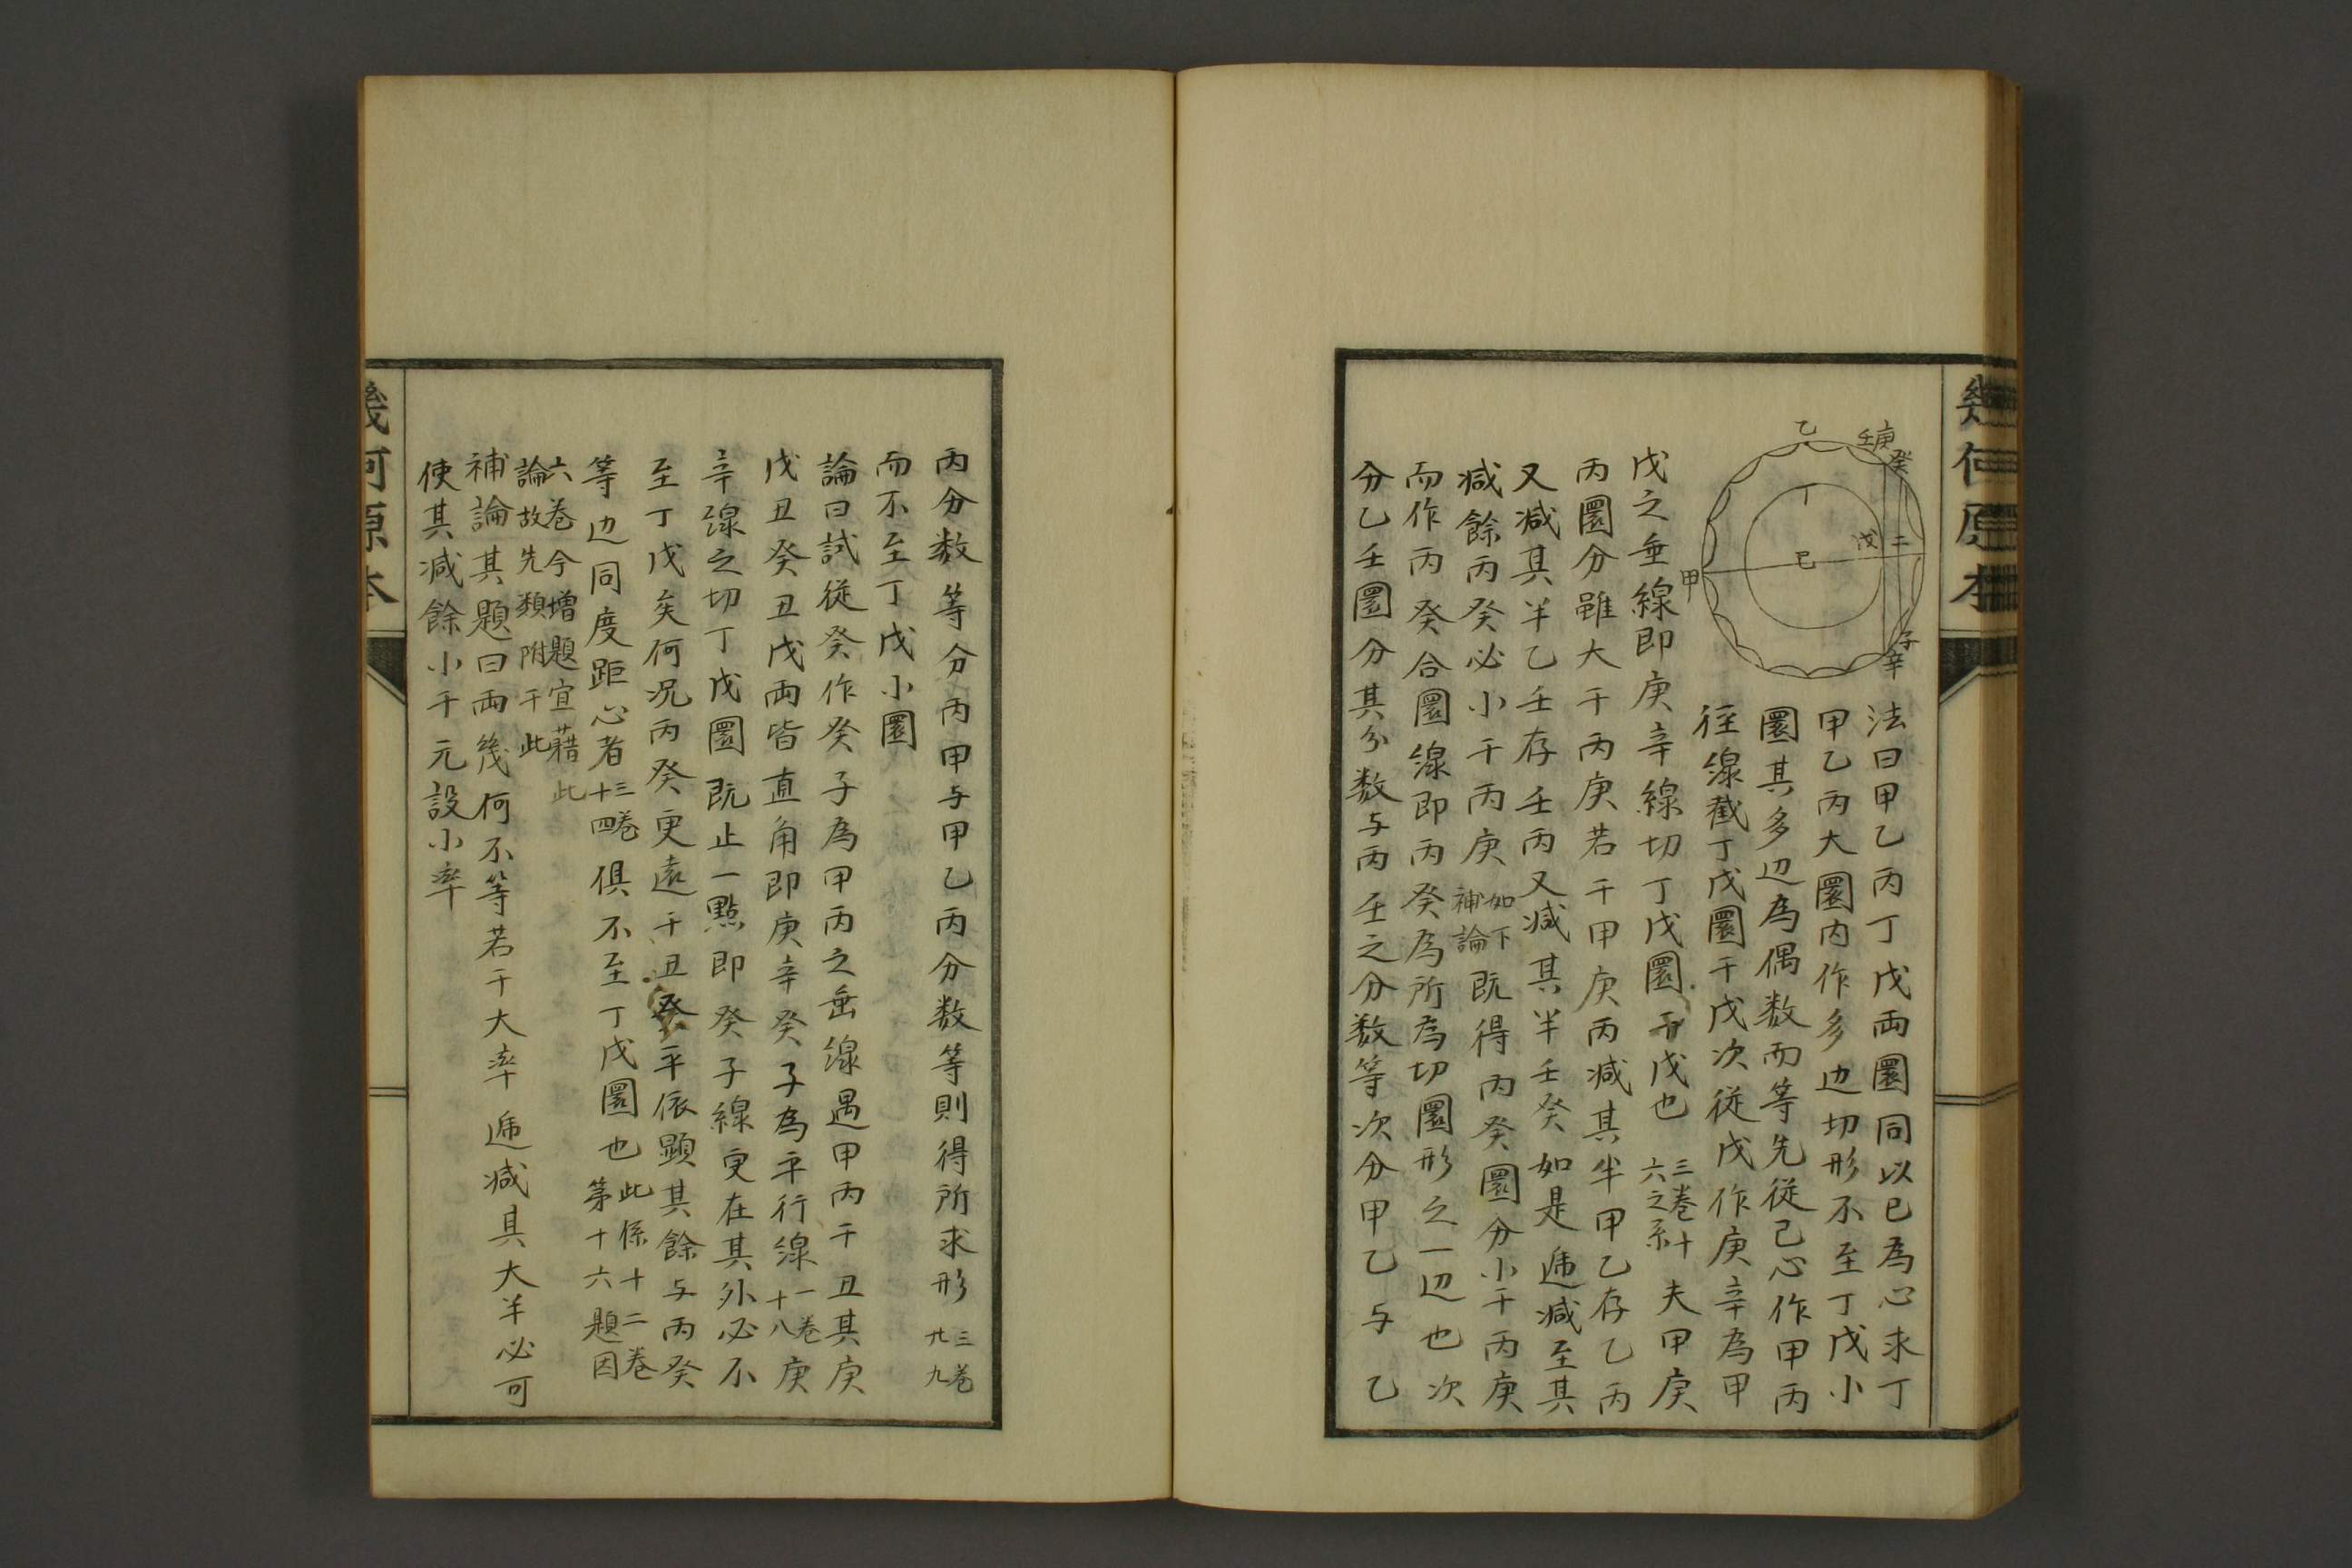 幾何原本
乙
壬庚
癸
丁
戊
二
己
甲
子
辛
法曰甲乙丙丁戊兩圜同以已為心求丁
甲乙丙大圜内作多边切形不至丁戊小
圜其多边為偶数而等先從己心作甲丙
徑線截丁戊圜于戊次従戊作庚辛為甲
戊之垂線即庚辛線切丁戊圜于戊也三卷十六之系夫甲庚
丙圜分雖大于丙庚若于甲庚丙减其半甲乙存乙丙
又减其半乙壬存壬丙又减其半壬癸如是逓减至其
减餘丙癸必小于丙庚如下補論既得丙癸圜分小于丙庚
而作丙癸合圜線即丙癸為所為切圜形之一边也次
分乙壬圜分其分数与丙壬之分数等次分甲乙与乙
丙分数等分丙甲与甲乙丙分数等則得所求形三卷卄九
而不至丁戊小圜
論曰試從癸作癸子為甲丙之垂線遇甲丙于丑其庚
戊丑癸丑戊兩皆直角即庚辛癸子為平行線一卷十八庚
辛線之切丁戊圜既止一點即癸子線更在其外必不
至丁戊矣何况丙癸更遠于丑癸乎依顯其餘与丙癸
等边同度距心者三卷十四俱不至丁戊圜也此係十二卷第十六題因
六卷今增題宜藉此
論故先類附于此
補論其題曰兩幾何不等若于大率逓减其大半必可
使其减餘小于元設小率
幾何原本